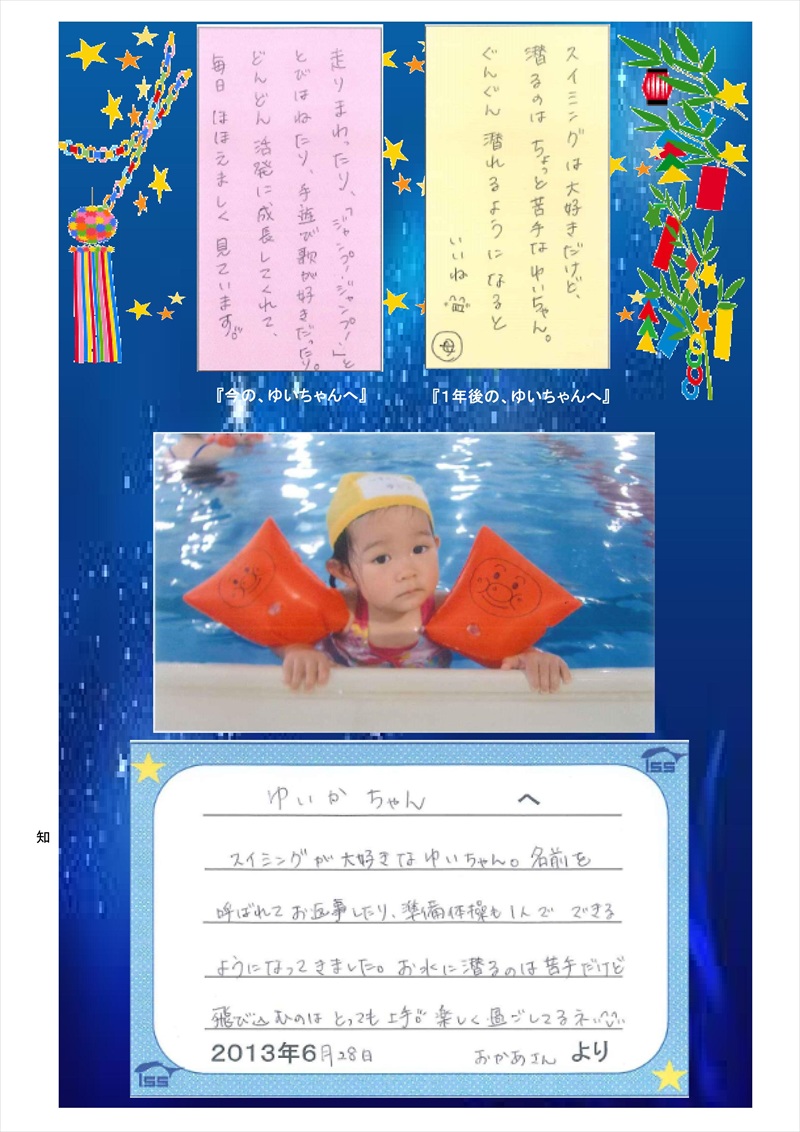 走りまわったり、「ジャンプ！ジャンプ！」と
とびはねたり、手遊び歌が好きだったり。
どんどん 活発に成長してくれて、
毎日 ほほえましく 見ています。
『今の、ゆいちゃんへ』
スイミングは大好きだけど、
潜るのは ちょっと苦手な ゆいちゃん。
ぐんぐん 潜れるようになると
いいね
母
『1年後の、ゆいちゃんへ』
知
ISS
ゆいか ちゃん へ
スイミングが大好きなゆいちゃん。名前を
呼ばれてお返事したり、準備体操も1人で できる
ようになってきました。お水に潜るのは苦手だけど
飛び込むのは とっても 上手。楽しく過ごしてるネ
2013年6月28日 おかあさん より
ISS